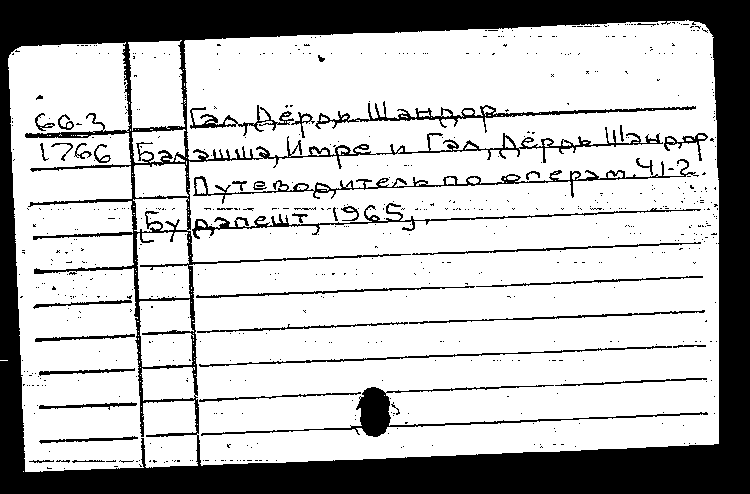 66-3 Гал, Дёрдь Шандор.
1766 Балашша, Имре и Гал, Дёрдь Шандор.
Путеводитель по операм. Ч.1-2.
[Будапешт, 1965].